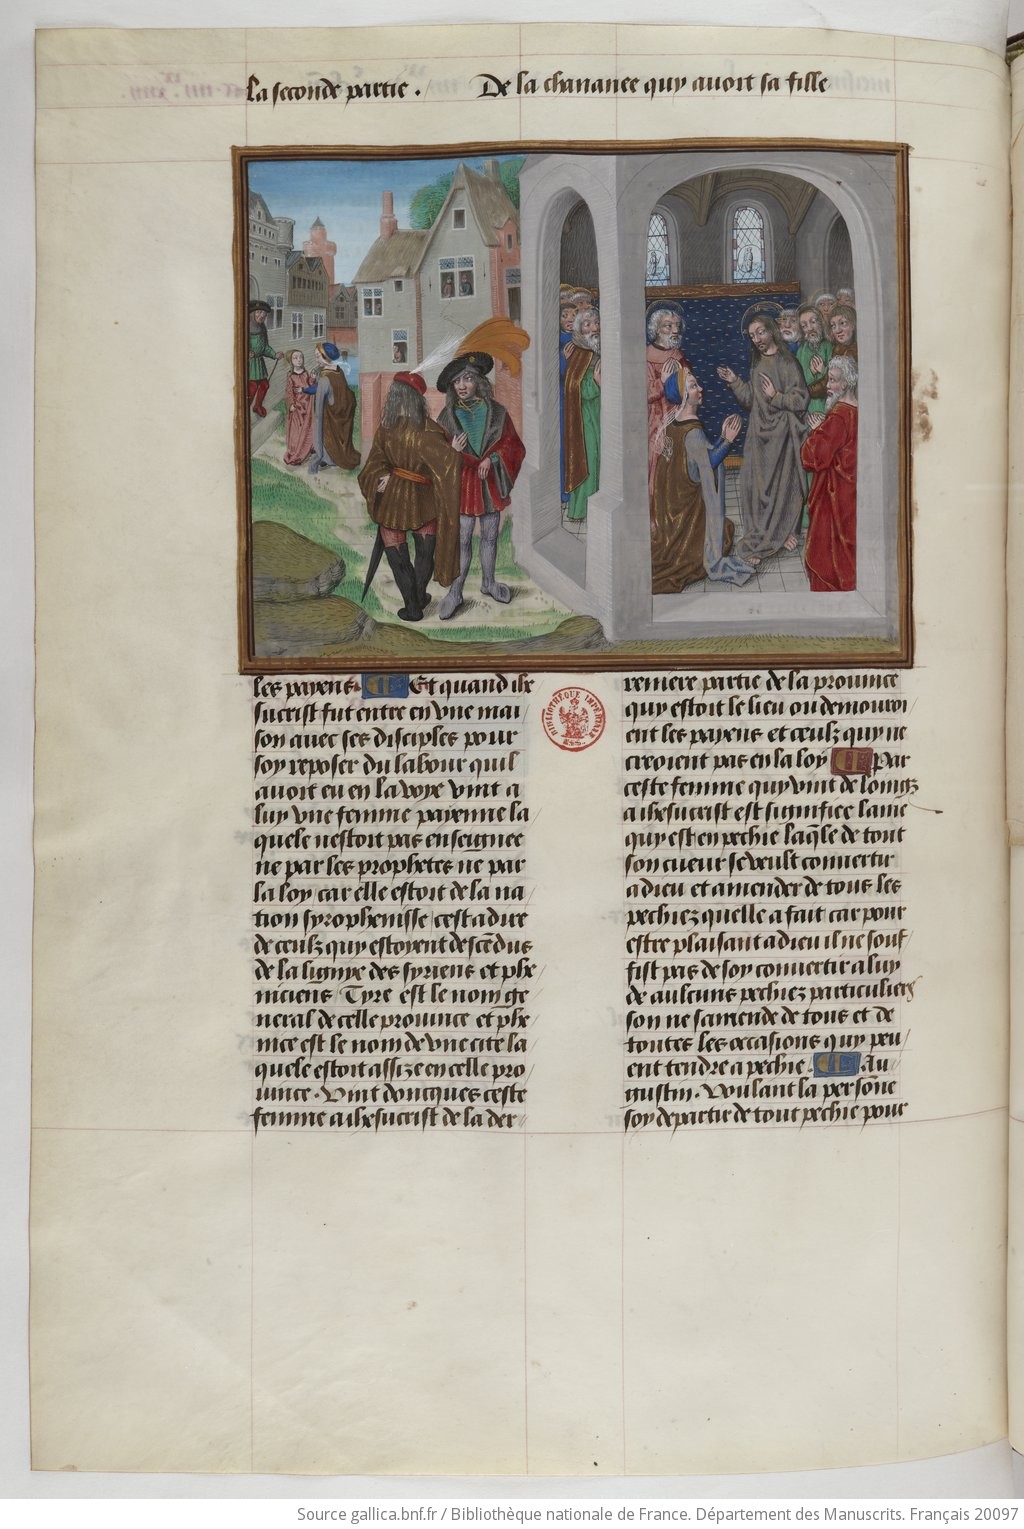 La seconde partie . De la chananee quy avoit sa fille
les payens. Et quand ihe
sucrist fut entre en vne mai
son avec ses disciples pour
soy reposer du labour quil
avoit eu en la voye vint a
luy vne femme payenne la
quele nestoit pas enseignee
ne par les prophetes ne par
la loy car elle estoit de la na
tion syrophenisse cest a dire
de ceulz quy estoyent descẽdus
de la lignye des syriens et phe
niciens Tyre est le nom ge
neral de celle prouince et phe
nice est le nom de vne cite la
quele estoit assize en celle pro
uince . Vint doncques ceste
femme a ihesucrist de la der
reniere partie de la prouince
quy estoit le lieu ou demouroi
ent les payens et ceulz quy ne
creoient pas en la loy Par
ceste femme quy vint de loingz
a ihesucrist est signifiee lame
quy est en pechie laq̃le de tout
son cueur se veult conuertir
a dieu et amender de tous les
pechiez quelle a fait car pour
estre plaisant a dieu il ne souf
fist pas de soy conuertir a luy
de aulcuns pechiez particuliers
son ne samende de tous et de
toutes les occasions quy peu
ent tendre a pechie . Au
gustin . Voulant la persõne
soy departir de tout pechie pour
BIBLIOTHÈQUE IMPÉRIALE
MSS.
Source gallica.bnf.fr / Bibliothèque nationale de France. Département des Manuscrits. Français 20097